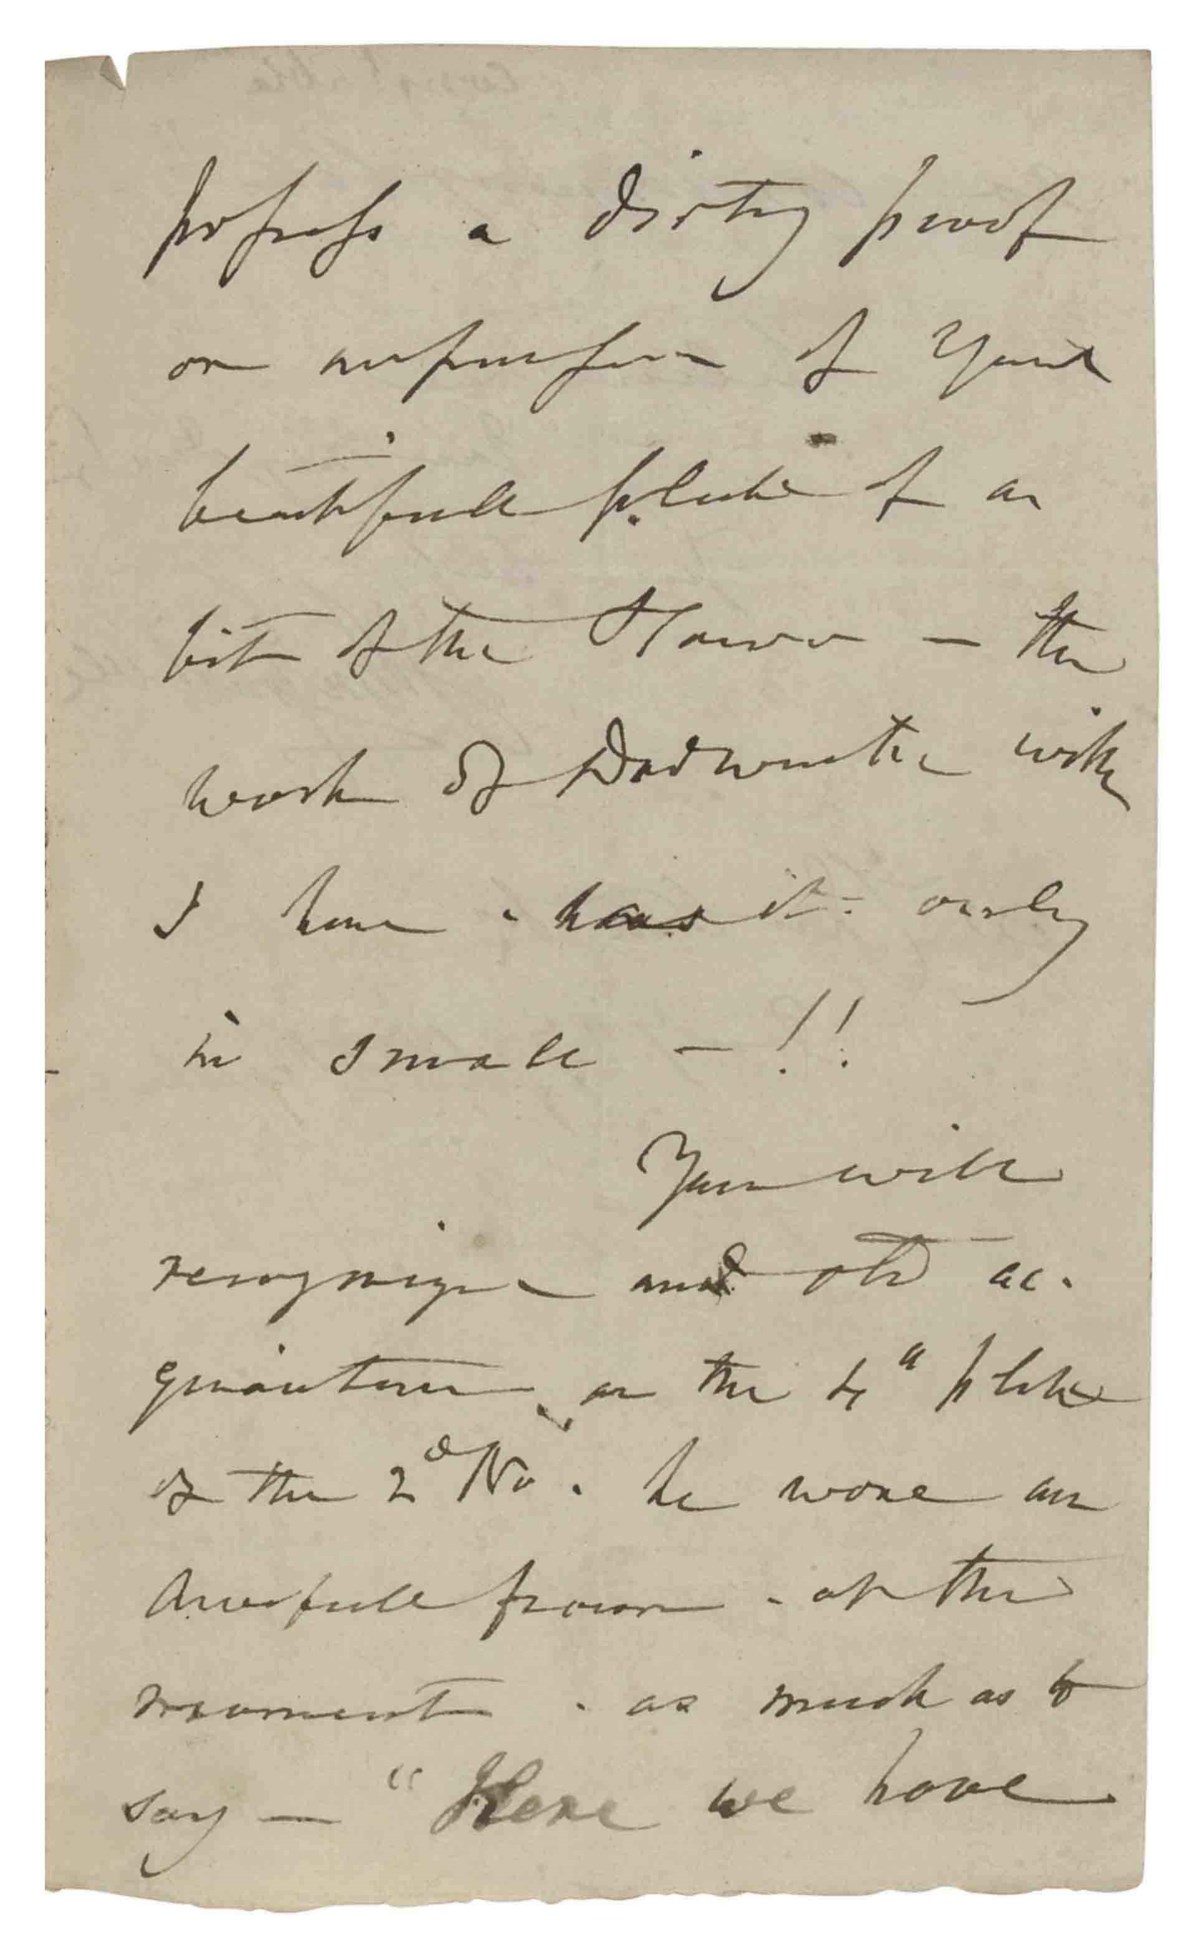 possess a dirty proof
or impression of your
beautifull plate of a
bit of the Stour — the
work of Dodwater with
I have - has it - only
in small — !!
You will
recognize and old ac-
quaintance in the 4th plate
of the 2d No. he wore an
awefull frown - at the
moment - as much as to
say — "Here we have